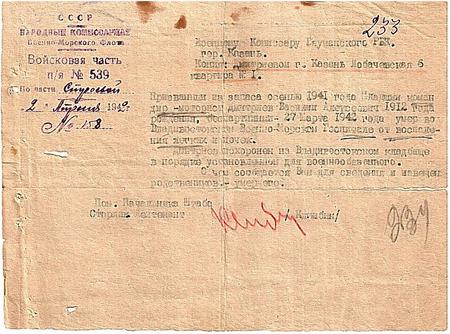 СССР
НАРОДНЫЙ КОМИССАРИАТ
Военно-Морского Флота
Войсковая часть
п/я № 539
По части Строевой
2 апреля 1942 г.
№ 158
233
Военному Комиссару РВК.
гор. Казань.
Копия: г. Казань Лобачевская 6
квартира № 1.
Призванный из запаса осенью 1941 года Младший коман
дир -моторист Василий 1912 года
рождения, беспартийный- 27 Марта 1942 года умер во
Владивостокском Военно-Морском Госпитале от воспаления
желчных и почек.
похоронен на Владивостокском кладбище
в порядке установленном для военнообязанного.
О чем сообщается Вам для сведения и извещения
родственников- умершего.
Пом. Начальника Штаба
Старший лейтенант
234